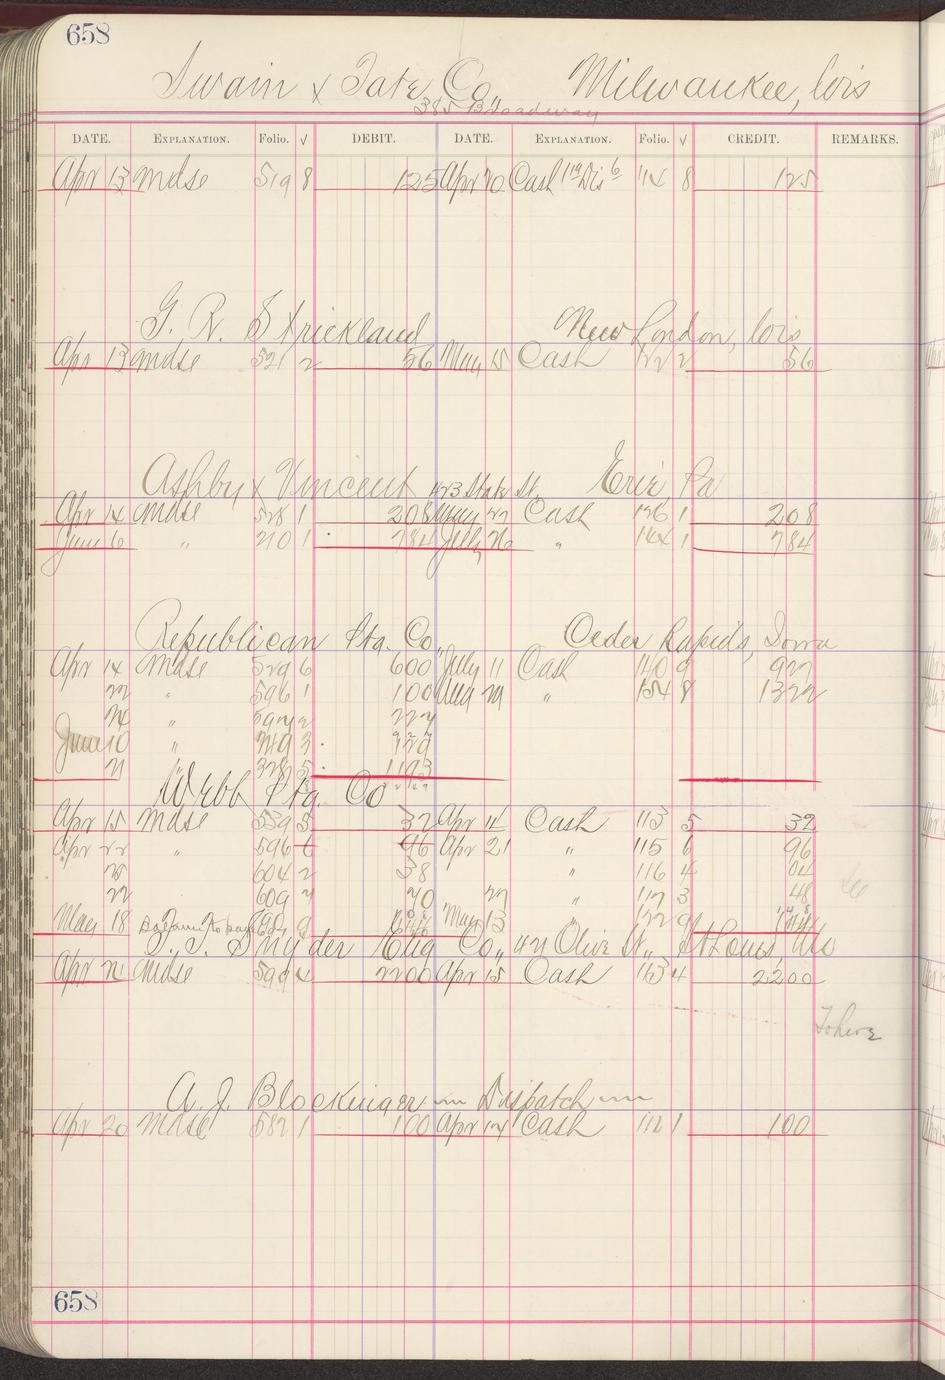 658
Swain & Tate Co., Milwaukee, Wis
385 Broadway
DATE. EXPLANATION. Folio. √ DEBIT. DATE. EXPLANATION. Folio. √ CREDIT. REMARKS.
Apr 13 Mdse 519 8 125 Apr 20 Cash 119 Dis 6 114 8 125
G. R. Strickland New London, Wis
Apr 13 Mdse 521 2 56 May 15 Cash 122 2 56
Ashby & Vincent 423 State St. Erie, Pa
Apr 14 Mdse 528 1 208 May 27 Cash 126 1 208
June 6 " 210 1 784 July 26 " 144 1 784
Republican Ptg. Co., Ceder Rapids, Iowa
Apr 14 Mdse 529 6 600 July 11 Cash 140 9 927
22 " 596 1 100 Aug 29 " 154 8 1322
24 " 597 2 227
June 10 " 249 3
21 " 328 5 1193
Webb Ptg. Co
Apr 15 Mdse 539 5 32 Apr 14 Cash 113 5 32
Apr 22 " 596 6 96 Apr 21 " 115 6 96
25 604 2 38 " 116 4 04
27 609 7 70 27 " 117 3 48
May 18 May 13 " 122 9
T. J. Snyder Eng Co., 421 Olive St., St Louis, Mo
Apr 21 Mdse 594 4 2200 Apr 15 Cash 163 4 2200
A. J. Blockinger Dispatch
Apr 20 Mdse 582 1 100 Apr 14 Cash 112 1 100
658